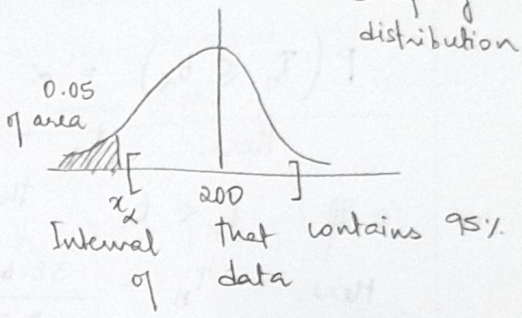 distribution
0.05
of area
[
]
x₂
200
Interval that contains 95%
of data